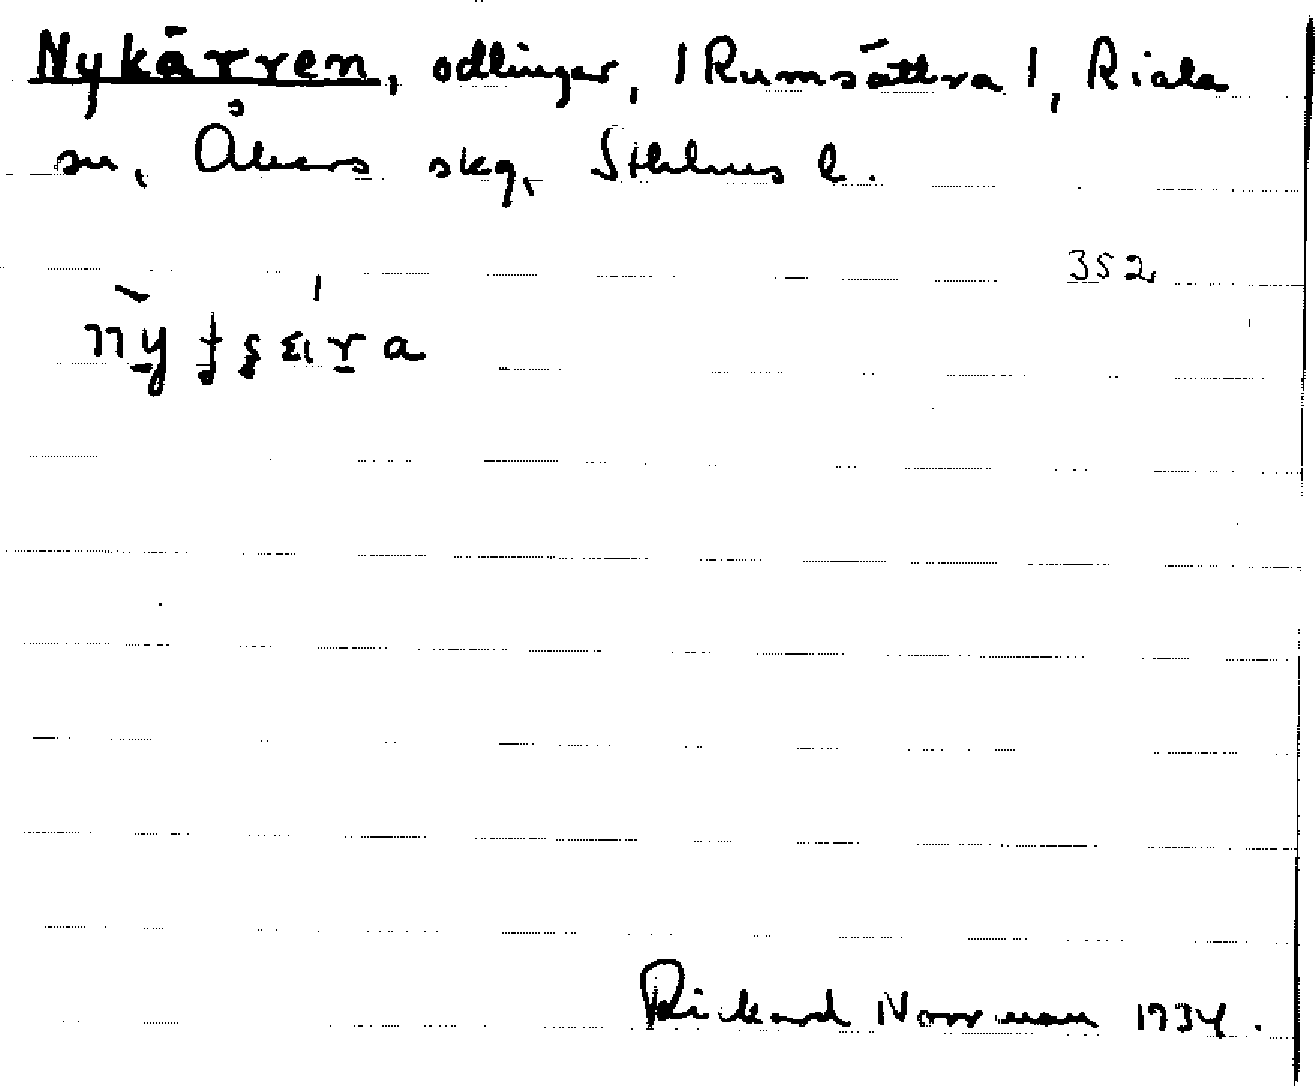 Nykärren, odlingar, |Rumsättra|, Riala
sn, Åkers skg, Sthlms l.
352
Rickard Norrman 1934.